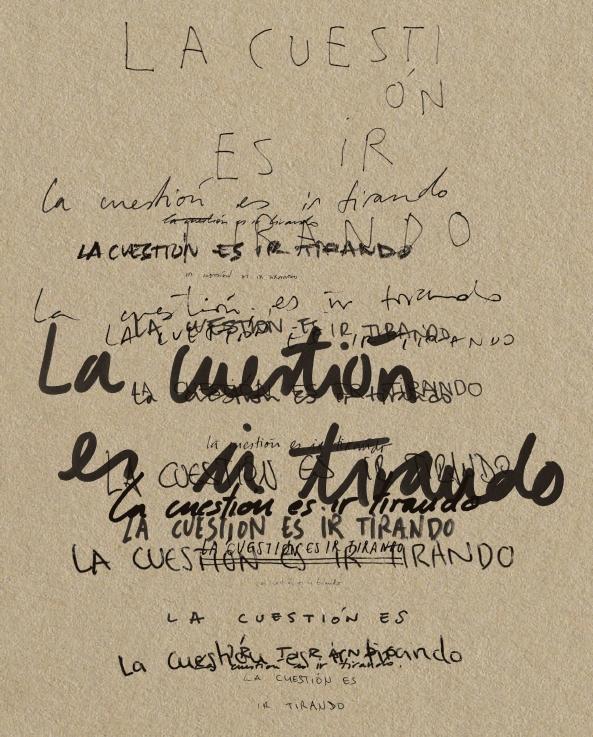 LA CUESTI
ÓN
ES IR
la cuestión es ir tirando
la cuestión es ir tirando
TIRANDO
LA CUESTIÓN ES IR TIRANDO
LA CUESTIÓN ES IR TIRANDO
La cuestión es ir tirando
LA CUESTIÓN ES IR TIRANDO
LA CUESTIÓN ES IR TIRANDO
La cuestión
LA CUESTIÓN ES IR TIRANDO
la cuestión es ir tirando
la cuestión es ir tirando
es ir tirando
LA CUESTIÓN ES IR TIRANDO
La cuestion es ir tirando
LA CUESTION ES IR TIRANDO
LA CUESTIÓN ES IR TIRANDO
LA CUESTIÓN ES IR TIRANDO
LA CUESTIÓN ES
IR TIRANDO
La cuestión es ir tirando
la cuestión es ir tirando.
LA CUESTIÓN ES
IR TIRANDO